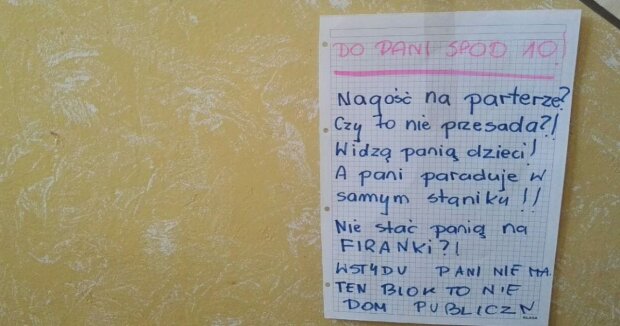 DO PANI SPOD 10
Nagość na parterze?
Czy to nie przesada?!
Widzą panią dzieci!
A pani paraduje w
samym staniku!!
Nie stać panią na
FIRANKI?!
WSTYDU PANI NIE MA.
TEN BLOK TO NIE
DOM PUBLICZN